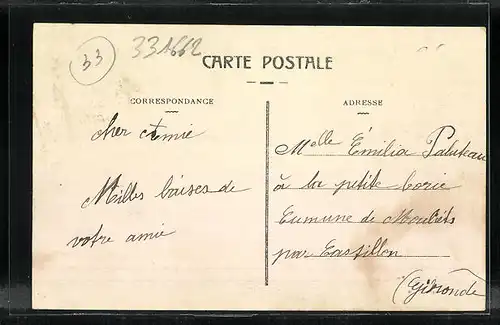 33
331662
CARTE POSTALE
CORRESPONDANCE
ADRESSE
cher Amie
Milles baises de
votre amie
Melle Émilia Paluteau
à la petite borie
Cumune de Mouliets
par Castillon
(Gironde